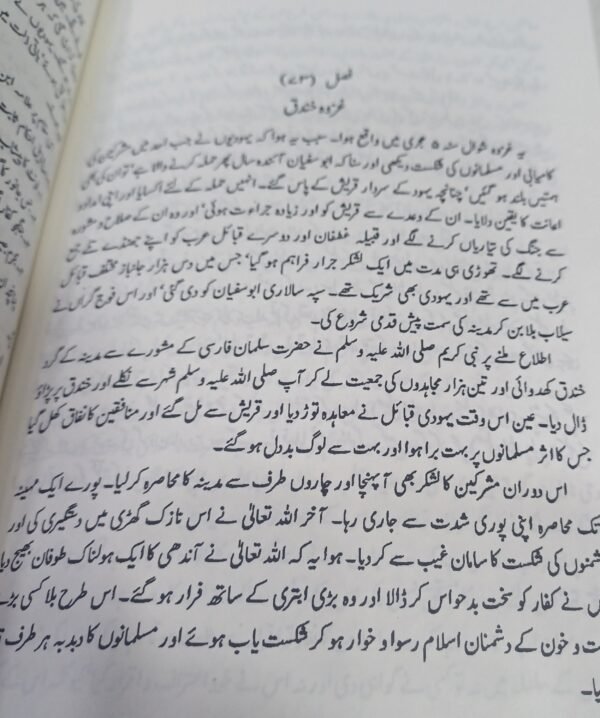 فصل (۷۳)
غزوہ خندق
یہ غزوہ شوال سنہ ۵ ہجری میں واقع ہوا۔ سبب یہ ہوا کہ یہودیوں نے جب احد میں مشرکین کی
کامیابی اور مسلمانوں کی شکست دیکھی اور سنا کہ ابو سفیان آئندہ سال پھر حملہ کرنے والا ہے‘ تو ان کی بھی
ہمتیں بلند ہو گئیں‘ چنانچہ یہود کے سردار قریش کے پاس گئے۔ انہیں حملہ کے لئے اکسایا اور اپنی امداد و
اعانت کا یقین دلایا۔ ان کے وعدے سے قریش کو اور زیادہ جراءت ہوئی‘ اور وہ ان کے صلاح و مشورہ
سے جنگ کی تیاریاں کرنے لگے اور قبیلہ غطفان اور دوسرے قبائل عرب کو اپنے جھنڈے تلے جمع
کرنے لگے۔ تھوڑی ہی مدت میں ایک لشکر جرار فراہم ہو گیا‘ جس میں دس ہزار جانباز مختلف قبائل
عرب میں سے تھے اور یہودی بھی شریک تھے۔ سپہ سالاری ابو سفیان کو دی گئی‘ اور اس فوج گراں نے
سیلاب بلا بن کر مدینہ کی سمت پیش قدمی شروع کی۔
اطلاع ملنے پر نبی کریم صلی اللہ علیہ وسلم نے حضرت سلمان فارسی کے مشورے سے مدینہ کے گرد
خندق کھدوائی اور تین ہزار مجاہدوں کی جمعیت لے کر آپ صلی اللہ علیہ وسلم شہر سے نکلے اور خندق پر پڑاؤ
ڈال دیا۔ عین اس وقت یہودی قبائل نے معاہدہ توڑ دیا اور قریش سے مل گئے اور منافقین کا نفاق کھل گیا
جس کا اثر مسلمانوں پر بہت برا ہوا اور بہت سے لوگ بددل ہو گئے۔
اس دوران مشرکین کا لشکر بھی آ پہنچا اور چاروں طرف سے مدینہ کا محاصرہ کر لیا۔ پورے ایک مہینہ
تک محاصرہ اپنی پوری شدت سے جاری رہا۔ آخر اللہ تعالیٰ نے اس نازک گھڑی میں دستگیری کی اور
شمنوں کی شکست کا سامان غیب سے کر دیا۔ ہوا یہ کہ اللہ تعالیٰ نے آندھی کا ایک ہولناک طوفان بھیج دیا
س نے کفار کو سخت بدحواس کر ڈالا اور وہ بڑی ابتری کے ساتھ فرار ہو گئے۔ اس طرح بلا کسی بڑے
ت و خون کے دشمنان اسلام رسوا و خوار ہو کر شکست یاب ہوئے اور مسلمانوں کا دبدبہ ہر طرف
یا۔